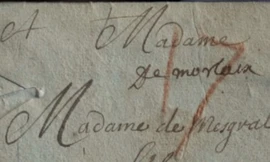 A Madame
De morlaix
Madame de Mesgral